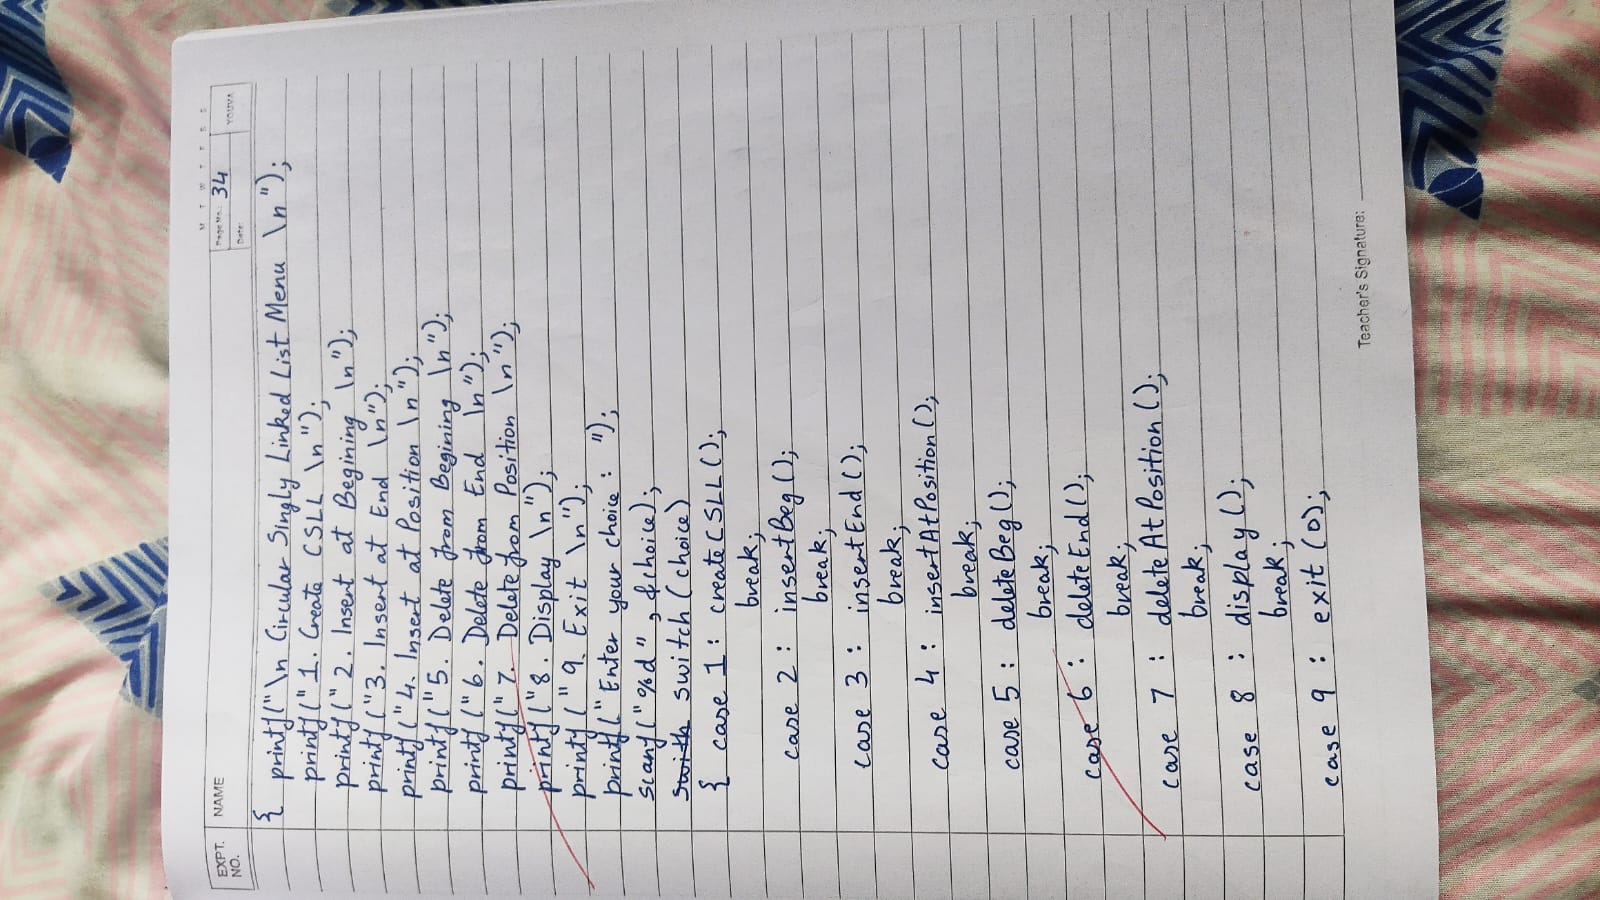 M T W T F S S
EXPT. NO. NAME Page No.: 34
Date: YOUVA
{ printf("\n Circular Singly Linked List Menu \n");
printf(" 1. Create CSLL \n");
printf(" 2. Insert at Begining \n");
printf ("3. Insert at End \n");
printf ("4. Insert at Position \n");
printf ("5. Delete from Begining \n");
printf ("6. Delete from End \n");
printf(" 7. Delete from Position \n");
printf("8. Display \n");
printf (" 9. Exit \n");
printf("Enter your choice : ");
scanf("%d", &choice);
swith switch (choice)
{ case 1: createCSLL();
break;
case 2: insertBeg();
break;
case 3: insertEnd();
break;
case 4: insertAtPosition();
break;
case 5: deleteBeg();
break;
case 6: deleteEnd();
break;
case 7: deleteAtPosition();
break;
case 8: display();
break;
case 9: exit(0);
Teacher's Signature: